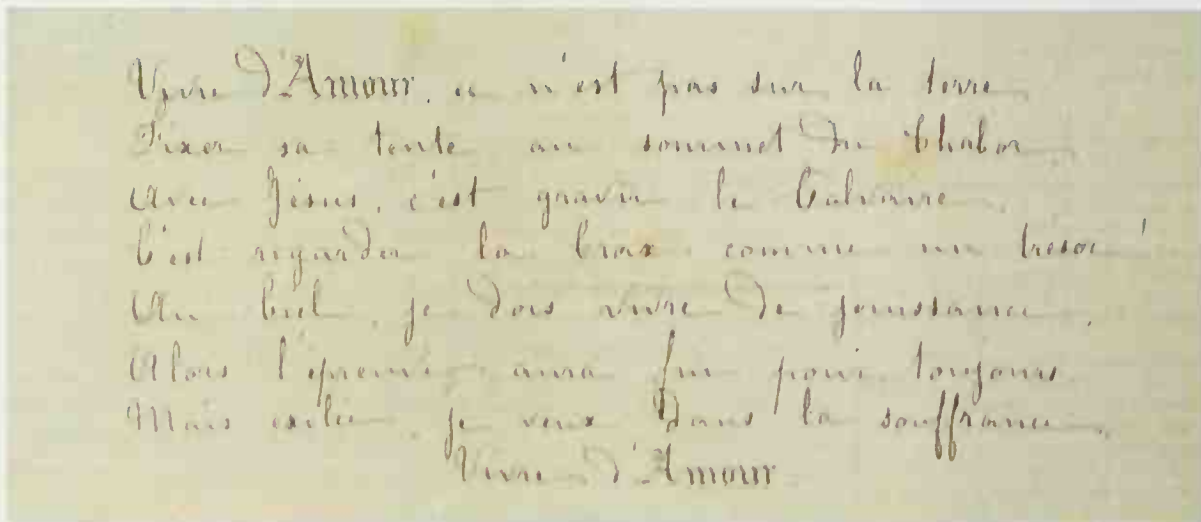 Vivre d'Amour, ce n'est pas sur la terre
Fixer sa tente au sommet du Thabor
Avec Jésus, c'est gravir le Calvaire,
C'est regarder la Croix comme un trésor !
Au Ciel, je dois vivre de jouissance,
Alors l'épreuve aura fui pour toujours
Mais exilée, je veux dans la souffrance,
Vivre d'Amour